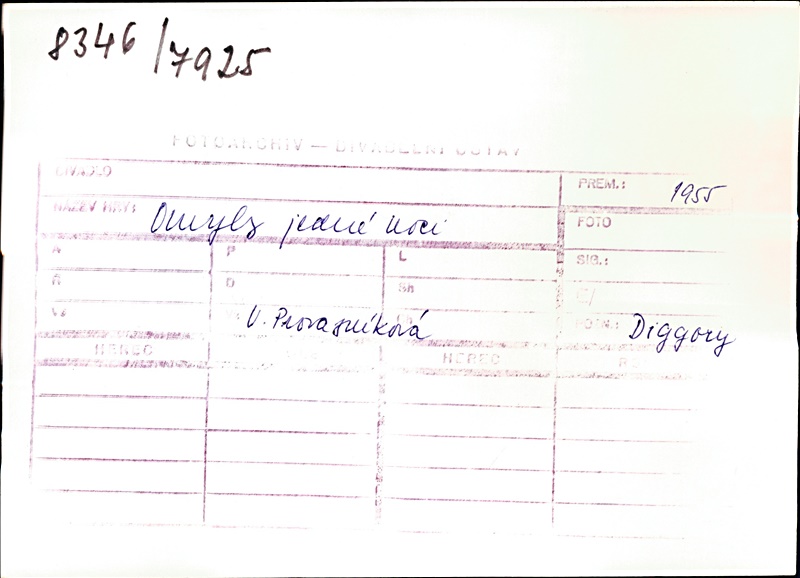 8346/7925
FOTOARCHIV — DIVADELNÍ ÚSTAV
DIVADLO
PREM.: 1955
NÁZEV HRY: Omyly jedné noci
FOTO
A P L SIG.:
R D Sh
V. Provazníková POZN.: Diggory
HEREC HEREC